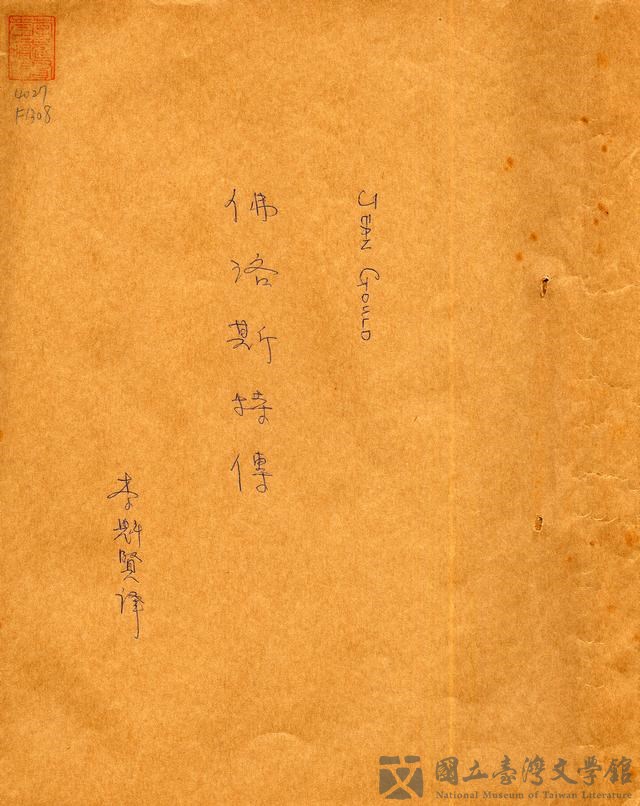 4027
F1308
Jean Gould
佛洛斯特傳
李魁賢譯
國立臺灣文學館
National Museum of Taiwan Literature